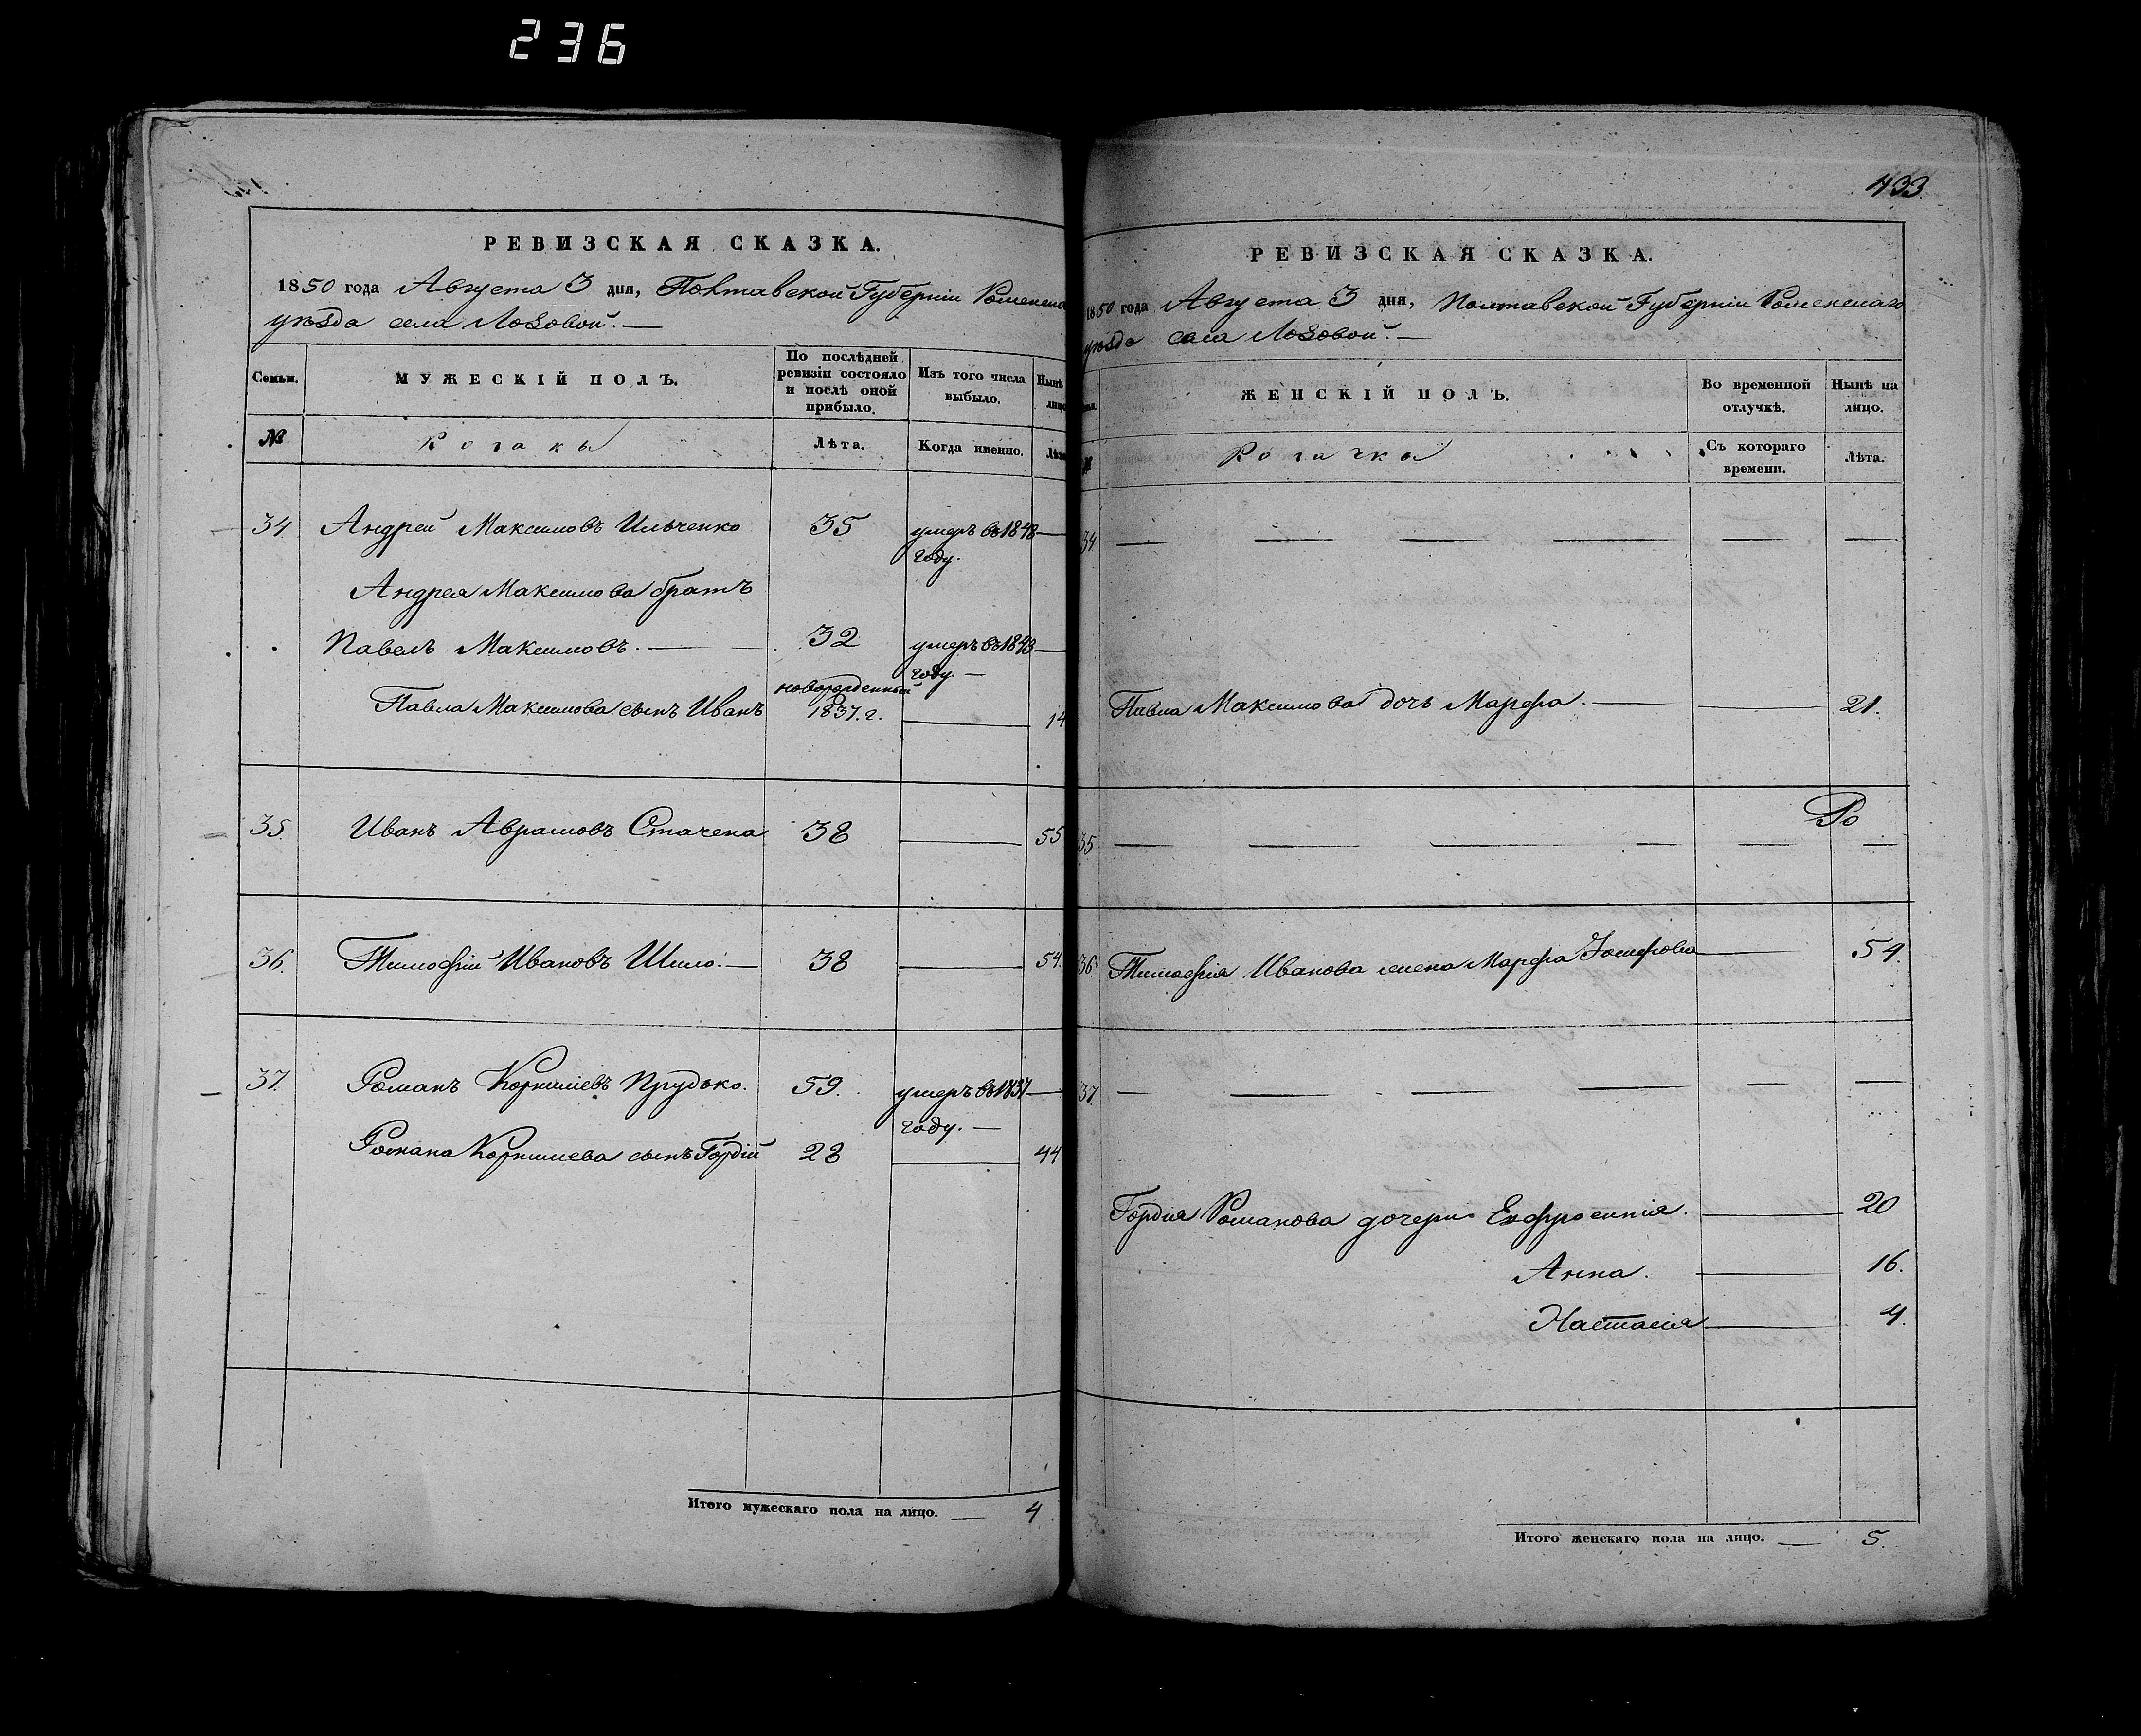 236
РЕВИЗСКАЯ СКАЗКА.
1850 года Августа 3 дня, Полтавской Губерніи Роменскаго
уѣзда села Лозовой. —
Семьи.
МУЖЕСКІЙ ПОЛЪ.
По послѣдней ревизіи состояло и послѣ оной прибыло.
Изъ того числа выбыло.
Нынѣ на лицо.
№
Козаки
Лѣта.
Когда именно.
Лѣта
34. Андрей Максимовъ Ильченко 35 умеръ въ 1848 —
году.
Андрея Максимова братъ
Павелъ Максимовъ. — 32 умеръ въ 1843 —
году. —
новорожденный
Павла Максимова сынъ Иванъ 1837. г. — 14
35. Иванъ Аврамовъ Стачена 38 — 55
36. Тимофій Ивановъ Шило. — 38 — 54.
37. Романъ Корниліевъ Прудько. 59. умеръ въ 1837 —
году. —
Романа Корниліева сынъ Гордій 28 — 44
Итого мужескаго пола на лицо. — 4.
433.
РЕВИЗСКАЯ СКАЗКА.
1850 года Августа 3 дня, Полтавской Губерніи Роменскаго
уѣзда села Лозовой. —
ЖЕНСКІЙ ПОЛЪ.
Во временной отлучкѣ.
Нынѣ на лицо.
№
Козачки
Съ котораго времени.
Лѣта.
34. — — — — — —
Павла Максимова дочь Марфа. — — 21.
35 — — — — — —
36 Тимофія Иванова жена Марфа Іосифова — 54.
37. — — — — — —
Гордія Романова дочери Ефросинія. — 20
Анна. — 16.
Настасія — 4.
Итого женскаго пола на лицо. — 5.